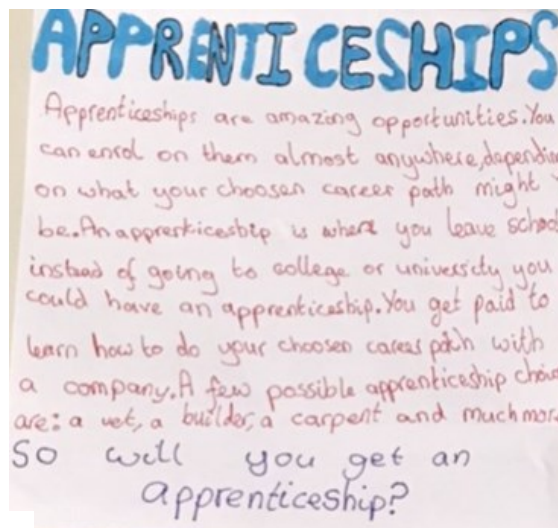 APPRENTICESHIPS
Apprenticeships are amazing opportunities. You
can enrol on them almost anywhere, dependin
on what your choosen career path might
be. An apprenticeship is where you leave school
instead of going to college or university you
could have an apprenticeship. You get paid to
learn how to do your choosen career path with
a company. A few possible apprenticeship choi
are: a vet, a builder, a carpent and much mor
So will you get an
apprenticeship?